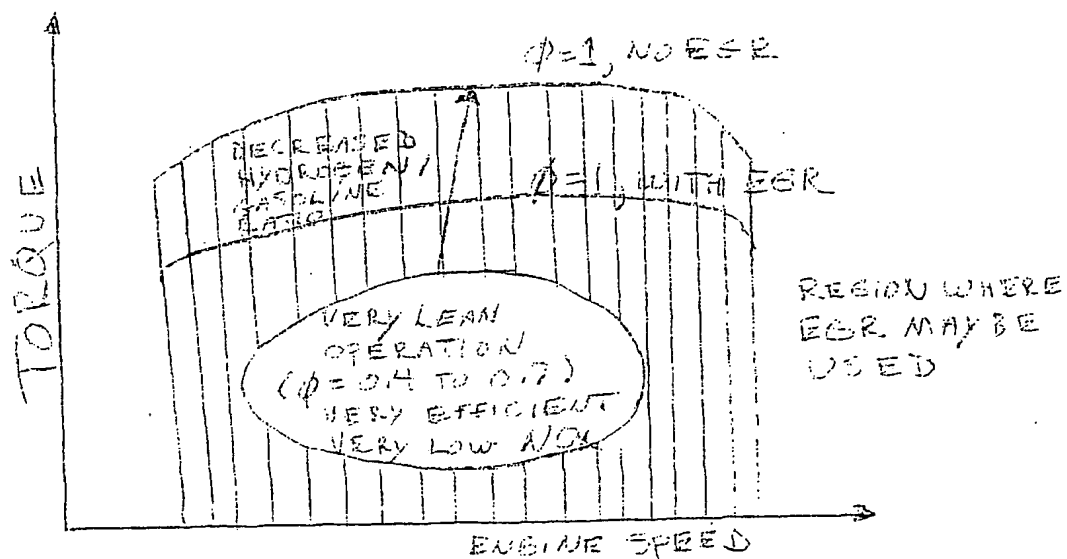 φ=1, NO EGR
DECREASED
HYDROGEN/
GASOLINE
RATIO
φ=1, WITH EGR
TORQUE
VERY LEAN
OPERATION
(φ=0.4 TO 0.7)
VERY EFFICIENT
VERY LOW NOx
REGION WHERE
EGR MAY BE
USED
ENGINE SPEED